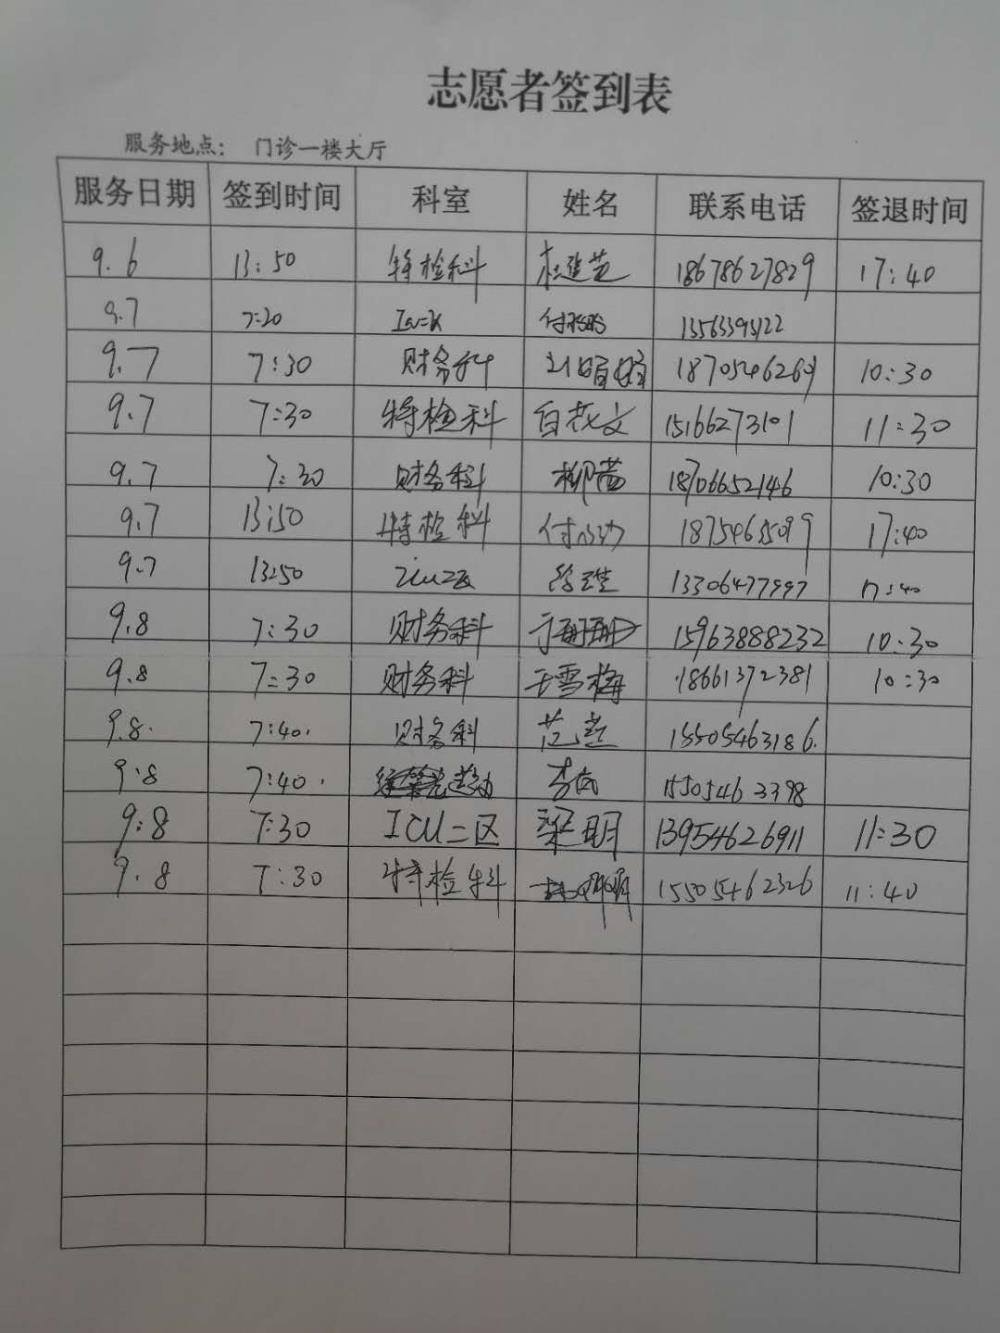 志愿者签到表
服务地点： 门诊一楼大厅
服务日期 签到时间 科室 姓名 联系电话 签退时间
9.6 13:50 特检科 18678627829 17:40
9.7 7:20
9.7 7:30 财务科 10:30
9.7 7:30 特检科 白花文 15166273101 11:30
9.7 7:30 财务科 柳蕾 18706652146 10:30
9.7 13:50 特检科 17:40
9.7 13:50 13306477997 17:40
9.8 7:30 财务科 15963888232 10:30
9.8 7:30 财务科 王雪梅 18661372381 10:30
9.8. 7:40. 财务科 15505463186.
9.8 7:40. 15505463398
9:8 7:30 ICU二区 梁明 13954626911 11:30
9.8 7:30 特检科 15505462326 11:40